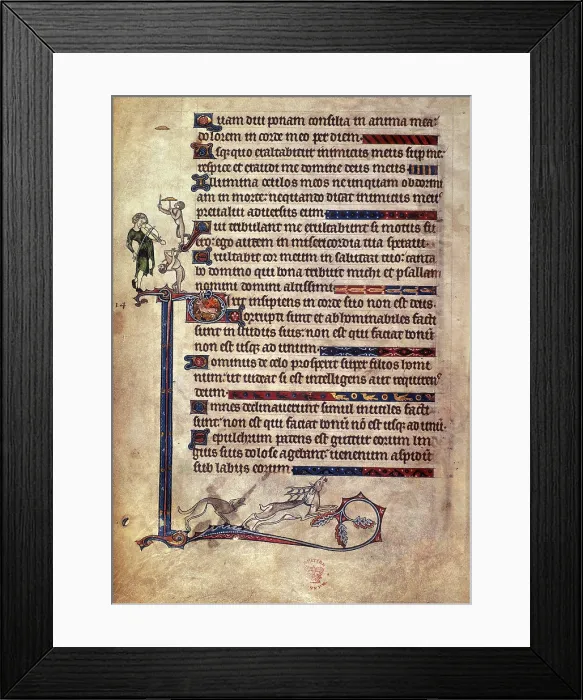 Quam diu ponam consilia in anima mea:
dolorem in corde meo per diem
sq; quo exaltabitur inimicus meus super me:
respice et exaudi me domine deus meus
Illumina oculos meos ne unquam obdormi
am in morte: nequando dicat inimicus meus
prevalui adversus eum
ui tribulant me exultabunt si motus fu
ero: ego autem in misericordia tua speravi
Exultabit cor meum in salutari tuo: canta
bo domino qui bona tribuit michi et psallam
nomini domini altissimi
14
Dixit insipiens in corde suo non est deus.
Corrupti sunt et abhominabiles facti
sunt in studiis suis: non est qui faciat bonū
non est usq; ad unum
Dominus de celo prospexit super filios homi
num: ut videat si est intelligens aut requirens
deum
Omnes declinaverunt simul inutiles facti
sunt: non est qui faciat bonū nō est usq; ad unū
Sepulchrum patens est guttur eorum lin
guis suis dolose agebant: venenum aspidū
sub labiis eorum